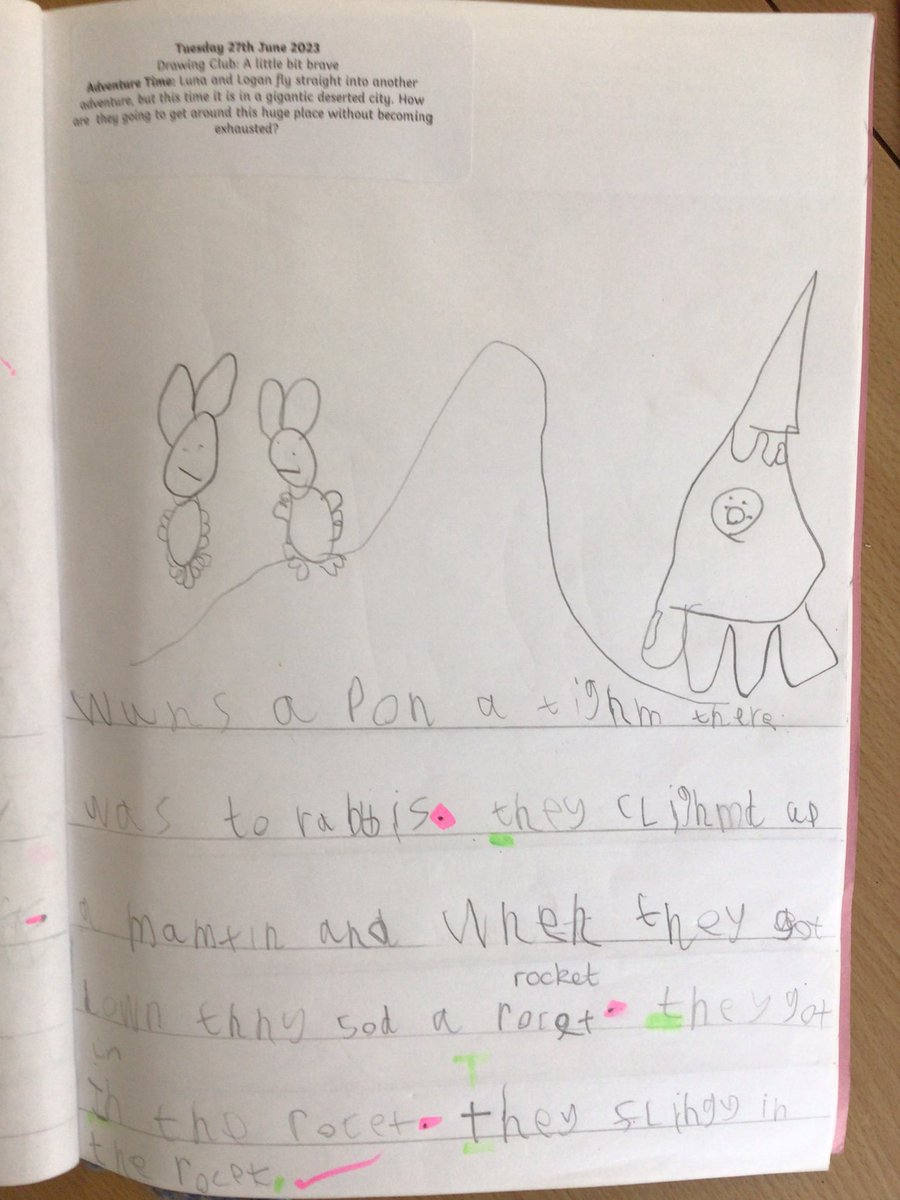 Tuesday 27th June 2023
Drawing Club: A little bit brave
Adventure Time: Luna and Logan fly straight into another
adventure, but this time it is in a gigantic deserted city. How
are they going to get around this huge place without becoming
exhausted?
wuns a Pon a tighm there
was to rabbis. they cLighmt up
a mamtin and when they got
down thhy sod a rocet. they got
rocket
in
in the rocet. they
T
in
the rocet.